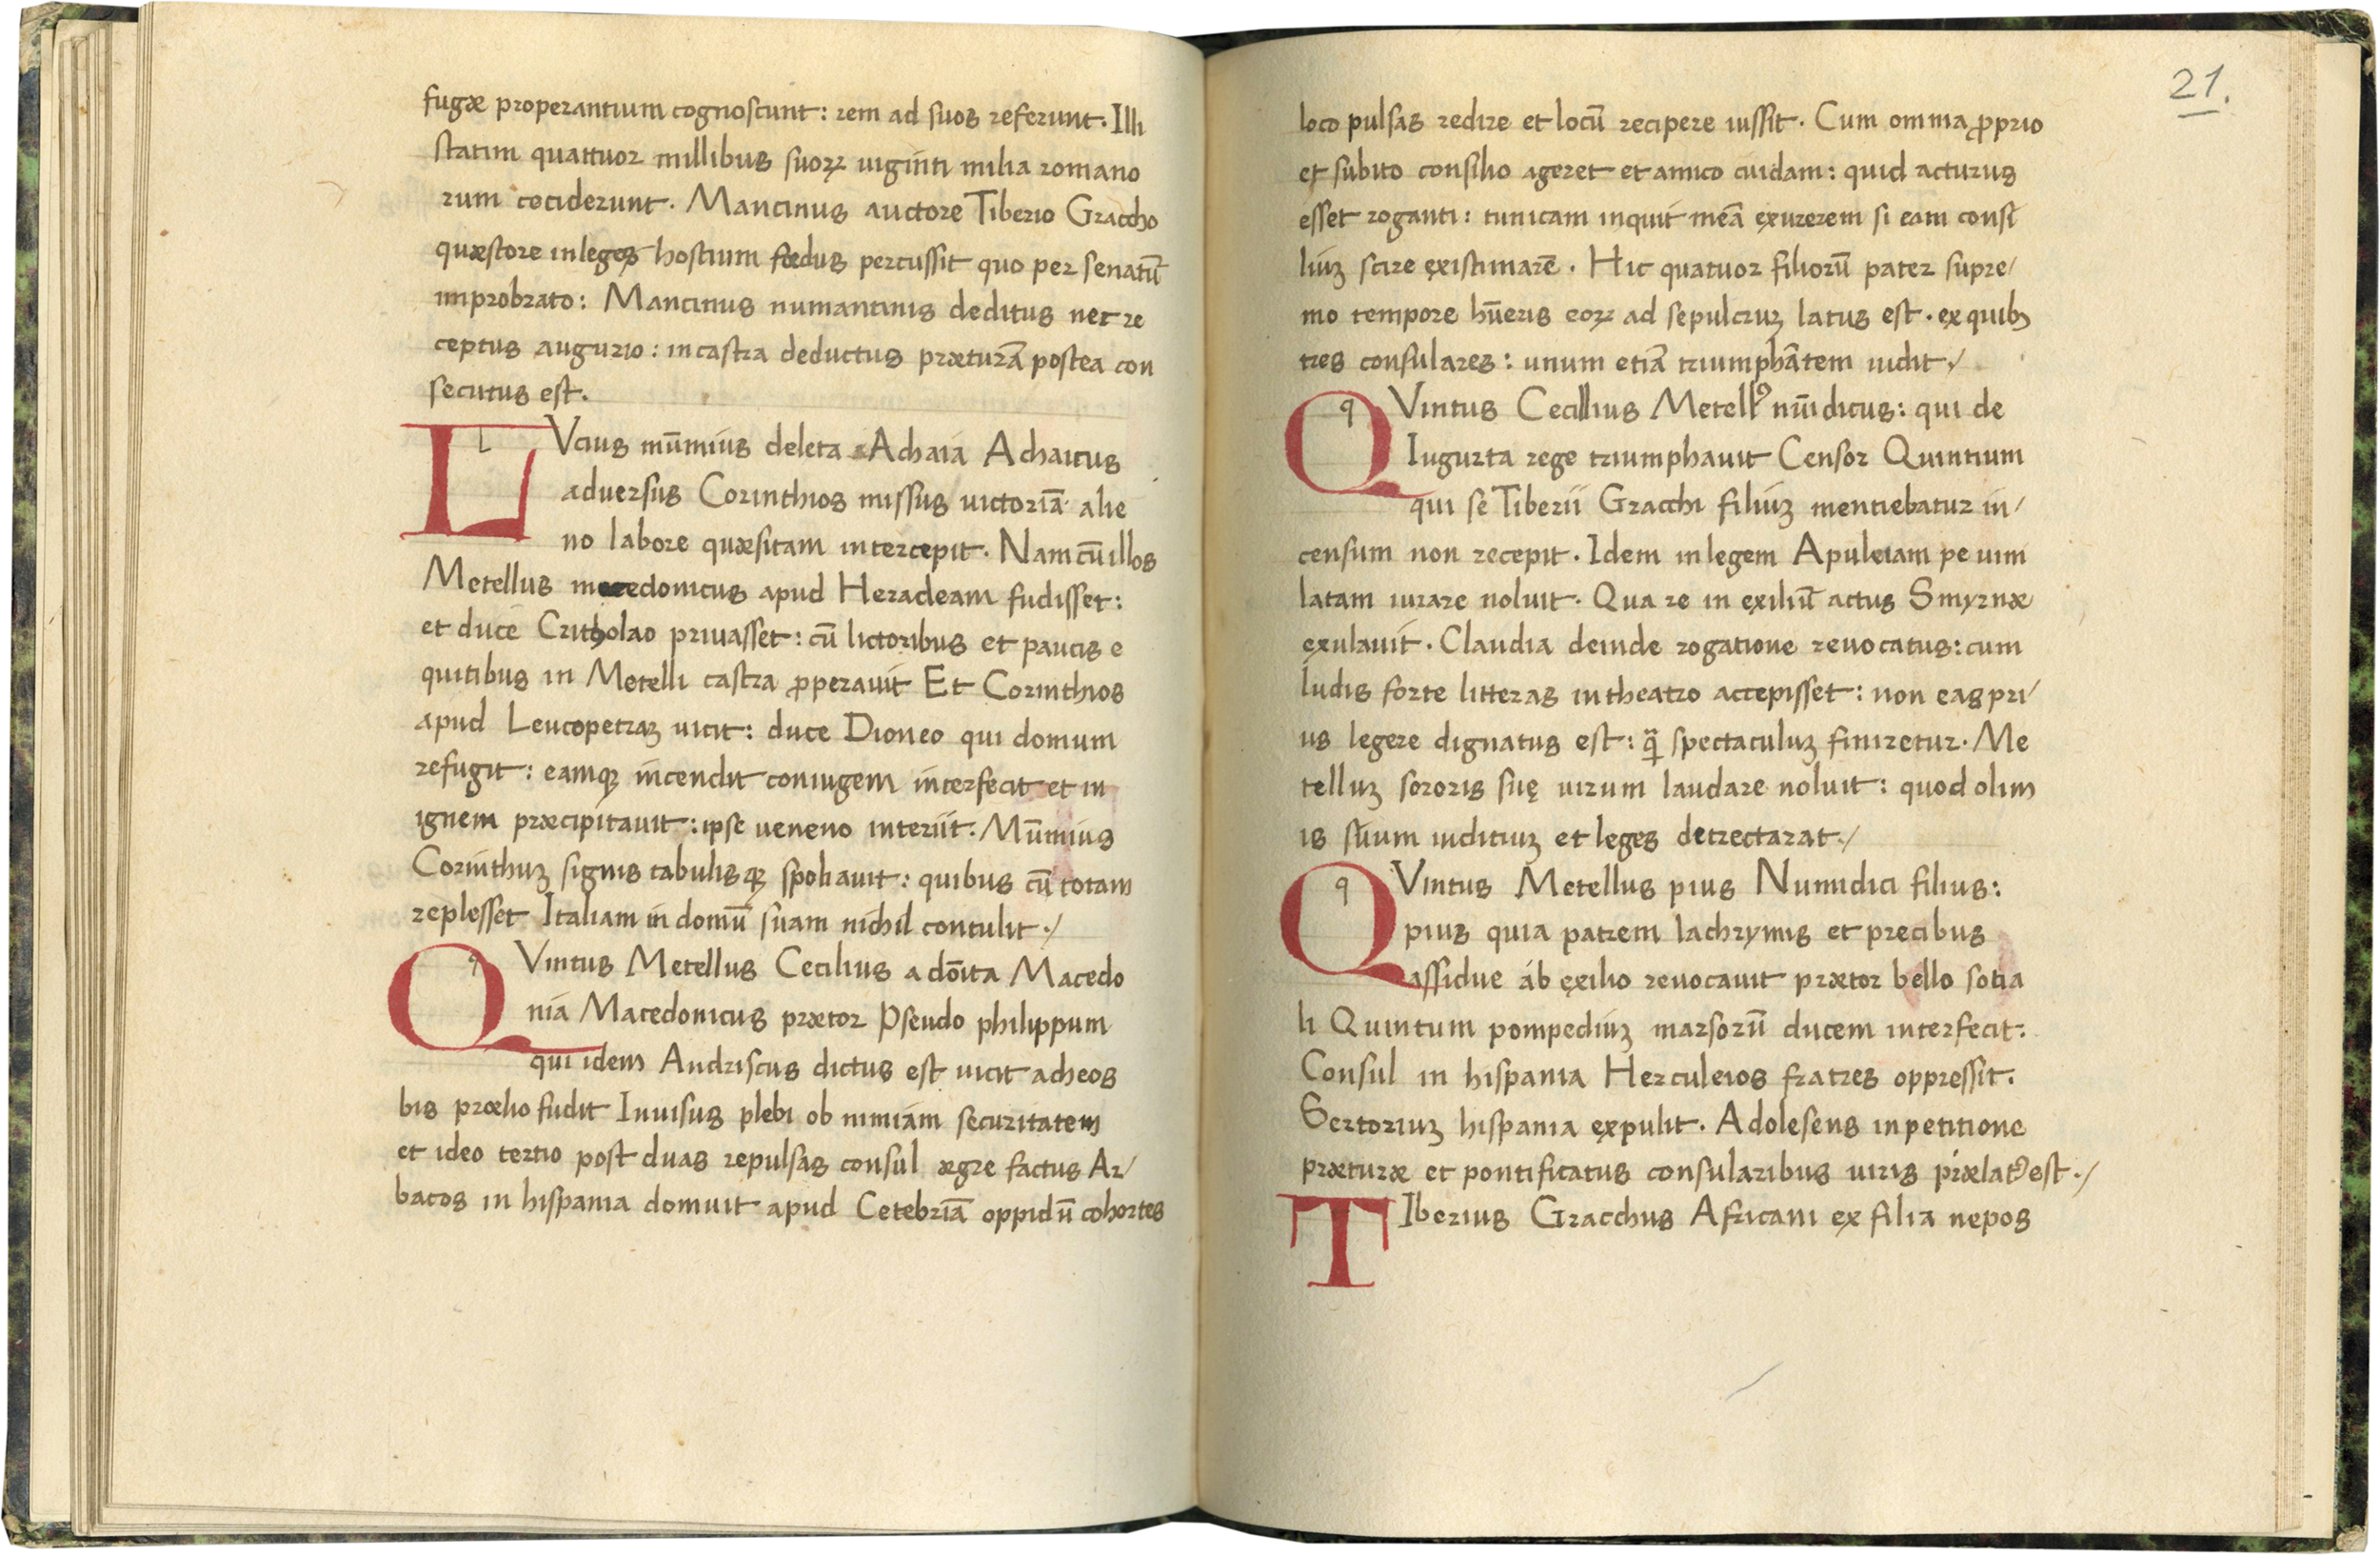 fugæ properantium cognoscunt: rem ad suos referunt. Illi
statim quattuor millibus suoꝝ uiginti milia romano
rum ceciderunt. Mancinus auctore Tiberio Graccho
quæstore inleges hostium fœdus percussit quo per senatū
improbrato: Mancinus numantinis deditus nec re
ceptus augurio: incastra deductus præturā postea con
secutus est.
L l Vcius mūmius deleta Achaia Achaicus
aduersus Corinthios missus uictoriā alie
no labore quæsitam intercepit. Nam cū illos
Metellus macedonicus apud Heracleam fudisset:
et duce Critholao priuasset: cū lictoribus et paucis e
quitibus in Metelli castra ꝓperauit Et Corinthios
apud Leucopetraꝫ uicit: duce Dioneo qui domum
refugit: eamqꝫ incendit coniugem interfecit et in
ignem præcipitauit: ipse ueneno interiit. Mūmius
Corinthuꝫ signis tabulisqꝫ spoliauit: quibus cū totam
replesset Italiam in domū suam nichil contulit./
Q q Vintus Metellus Cecilius a dōita Macedo
nia Macedonicus prætor Pseudo philippum
qui idem Andriscus dictus est uicit acheos
bis prœlio fudit Inuisus plebi ob nimiam securitatem
et ideo tertio post duas repulsas consul ægre factus Ar/
bacos in hispania domuit apud Cetebriā oppidū cohortes
21.
loco pulsas redire et locū recipere iussit. Cum omnia ꝓprio
et subito consilio ageret et amico cuidam: quid acturus
esset roganti: tunicam inquit meā exurerem si eam consi
liuꝫ scire existimarē. Hic quatuor filiorū pater supre/
mo tempore hūeris eoꝝ ad sepulcruꝫ latus est. ex quibꝫ
tres consulares: unum etiā triumphātem uidit./
Q q Vintus Cecilius Metellꝰ nūidicus: qui de
Iugurta rege triumphauit Censor Quintium
qui se Tiberii Gracchi filiuꝫ mentiebatur in/
censum non recepit. Idem inlegem Apuleiam pe uim
latam iurare noluit. Qua re in exiliū actus Smyrnæ
exulauit. Claudia deinde rogatione reuocatus: cum
ludis forte litteras in theatro accepisset: non eas pri/
us legere dignatus est: ꝙ̄ spectaculuꝫ finiretur. Me
telluꝫ sororis suę uirum laudare noluit: quod olim
is suum iuditiuꝫ et leges detrectarat./
Q q Vintus Metellus pius Numidici filius:
pius quia patrem lachrymis et precibus
assidue ab exilio reuocauit prætor bello sotia
li Quintum pompediuꝫ marsorū ducem interfecit:
Consul in hispania Herculeios fratres oppressit.
Sertoriuꝫ hispania expulit. Adolesens inpetitione
præturæ et pontificatus consularibus uiris prælatꝰ est./
T Iberius Gracchus Africani ex filia nepos